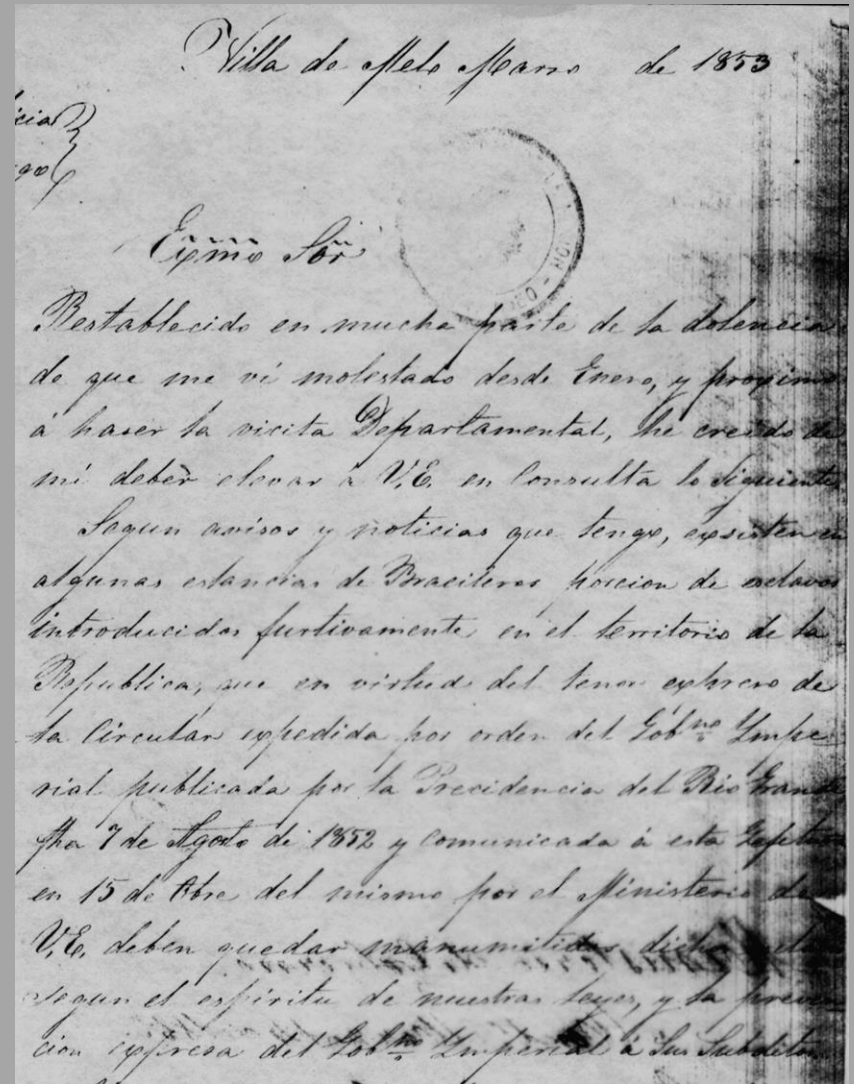 Villa de Melo Marzo de 1853
Exmo Sor
Restablecido en mucha parte de la dolencia
de que me ví molestado desde Enero, y proximo
á haser la vicita Departamental, he creido de
mi deber elevar à V.E. en Consulta lo siguiente
Segun avisos y noticias que tengo, existen en
algunas estancias de Braciteros porcion de esclavos
introducidos furtivamente en el territorio de la
Republica, que en virtud del tenor expreso de
la Circular expedida por orden del Gobno Ympe
rial publicada por la Precidencia del Rio Grande
fha 7 de Agosto de 1852 y comunicada á esta Gefetura
en 15 de Obre del mismo por el Ministerio de
V.E. deben quedar manumitidos
segun el espíritu de nuestras leyes, y la preven
cion expresa del Gobno Ymperial á sus Subditos